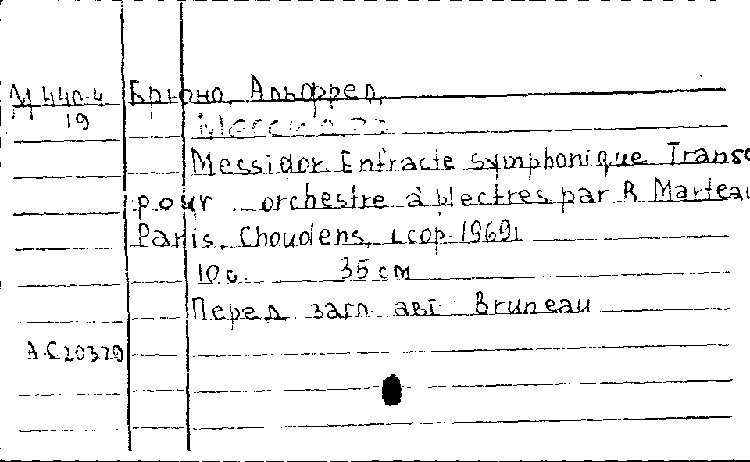 М 440-4 Брюно, Альфред.
19
Messidor. Entracte symphonique. Transc
pour orchestre à plectres par R. Marteau
Paris, Choudens, [cop. 1969].
10 с. 35 см
Перед загл. авт. Bruneau
А.С20379